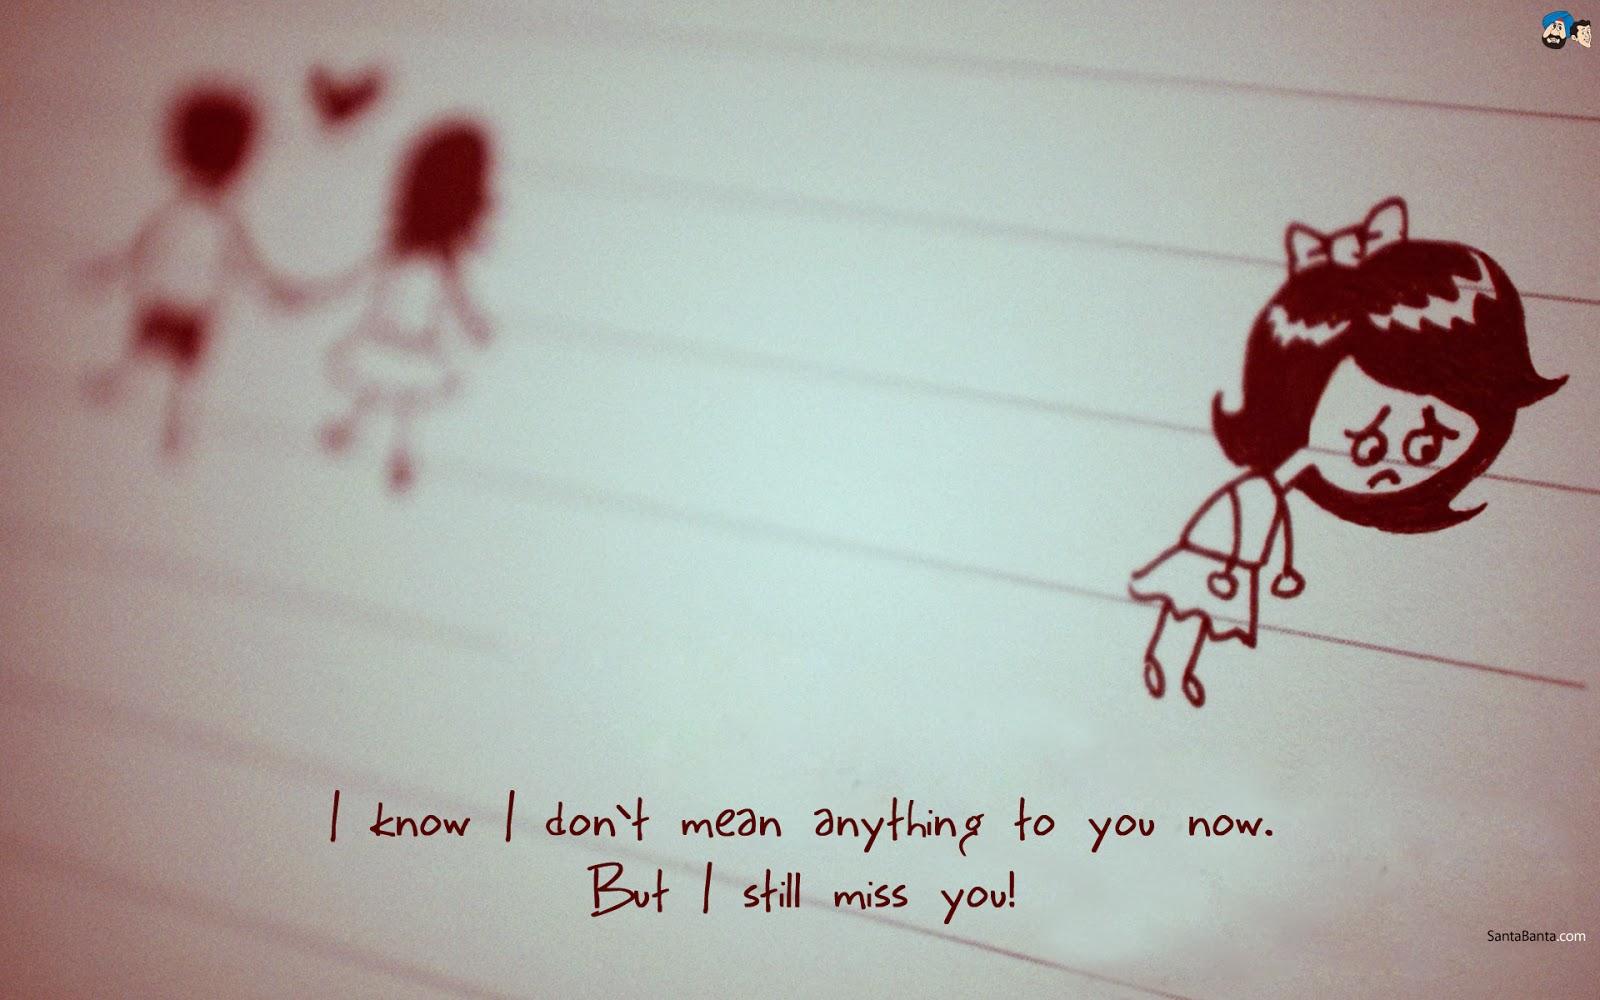 I know I don't mean anything to you now.
But I still miss you!
SantaBanta.com